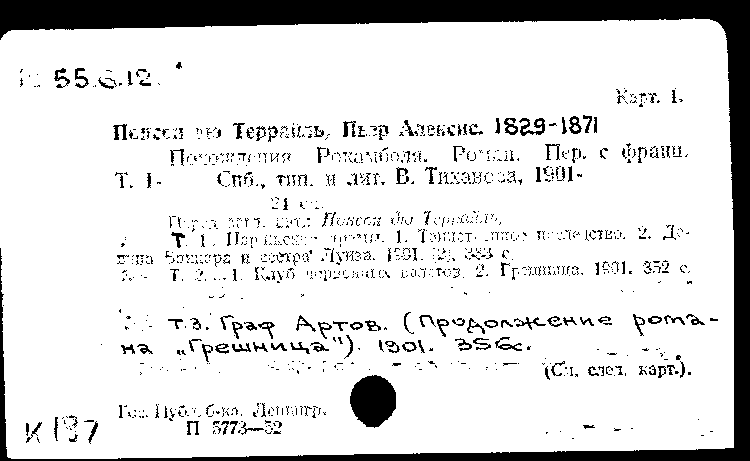 55.6.12.
Карт. 1.
Понсон дю Террайль, Пьер Алексис. 1829-1871
Похождения Рокамболя. Роман. Пер. с франц.
Т. 1- Спб., тип. и лит. В. Тиханова, 1901-
21 см.
Перед загл. авт.: Понсон дю Террайль.
Т. 1. Парижские драмы. 1. Таинственное наследство. 2. До-
Баккара и сестра Луиза. 1901. [2], 383 с.
Т. 2. 1. Клуб червонных валетов. 2. Грешница. 1901. 352 с.
Т.3. Граф Артов. (Продолжение рома-
на „Грешница"). 1901. 356с.
(См. след. карт.).
Гос. Публ. б-ка. Ленингр.
К 197
П 5773—52